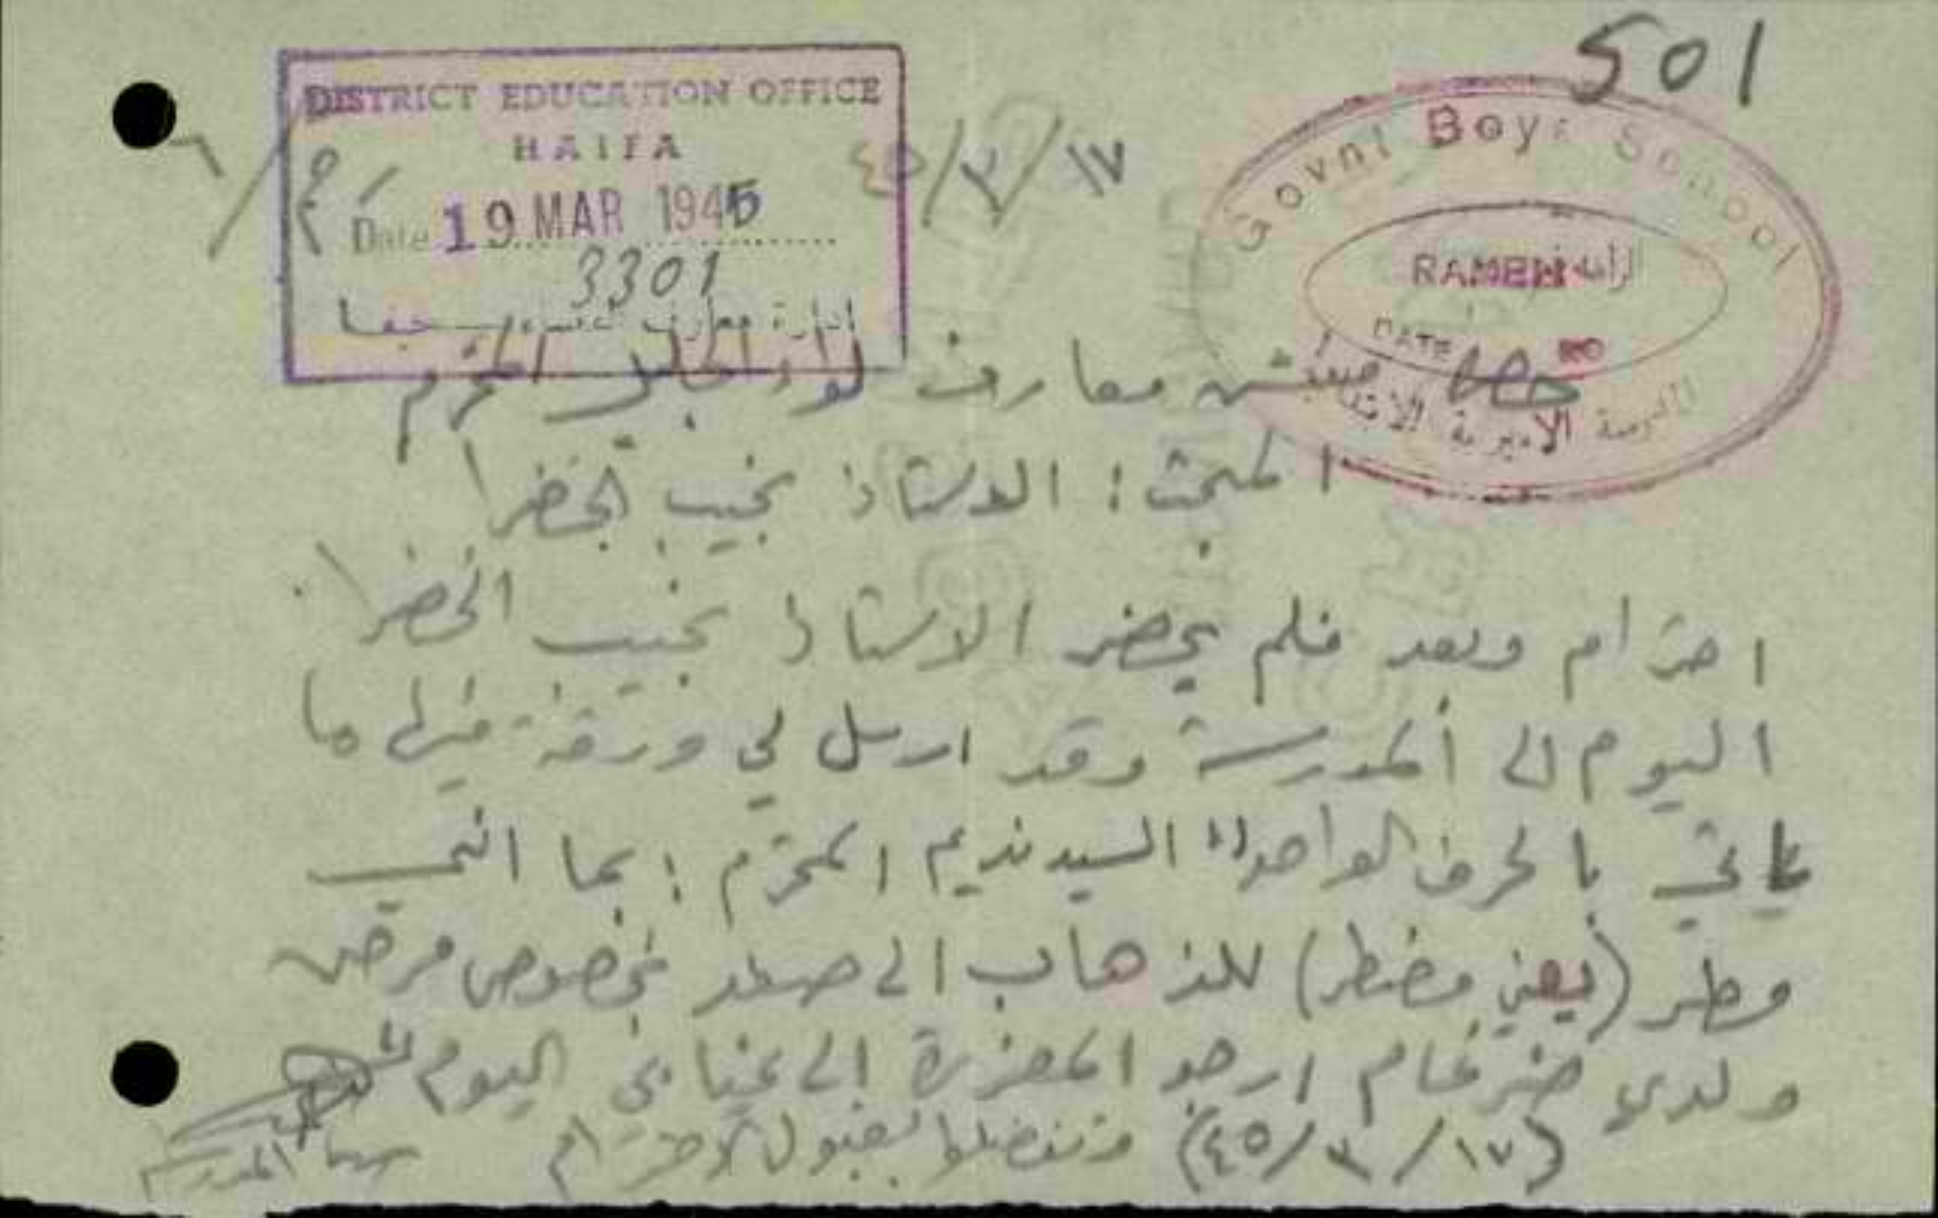 501
DISTRICT EDUCATION OFFICE
HAIFA
Date 19 MAR 1945
3301
ادارة معارف حيفا
٤٥/٣/١٧
Govnt Boys School
RAMEH الرامه
DATE NO
المدرسة الاميرية
حضرة مفتش معارف لواء الجليل المحترم
المبحث: الاستاذ نجيب الخضرا
احترام وبعد فلم يحضر الاستاذ نجيب الخضرا.
اليوم الى المدرسة وقد ارسل لي ورقة فيها ما
يأتي بالحرف الواحد "السيد نديم المحترم: بما انني
مطر (يعني مضطر) للذهاب الى صفد بخصوص مرض
ولدي ضرغام ارجو المعزرة الى غيابي اليوم"
(٤٥/٣/١٧) وتفضلوا بقبول الاحترام
المدرسة